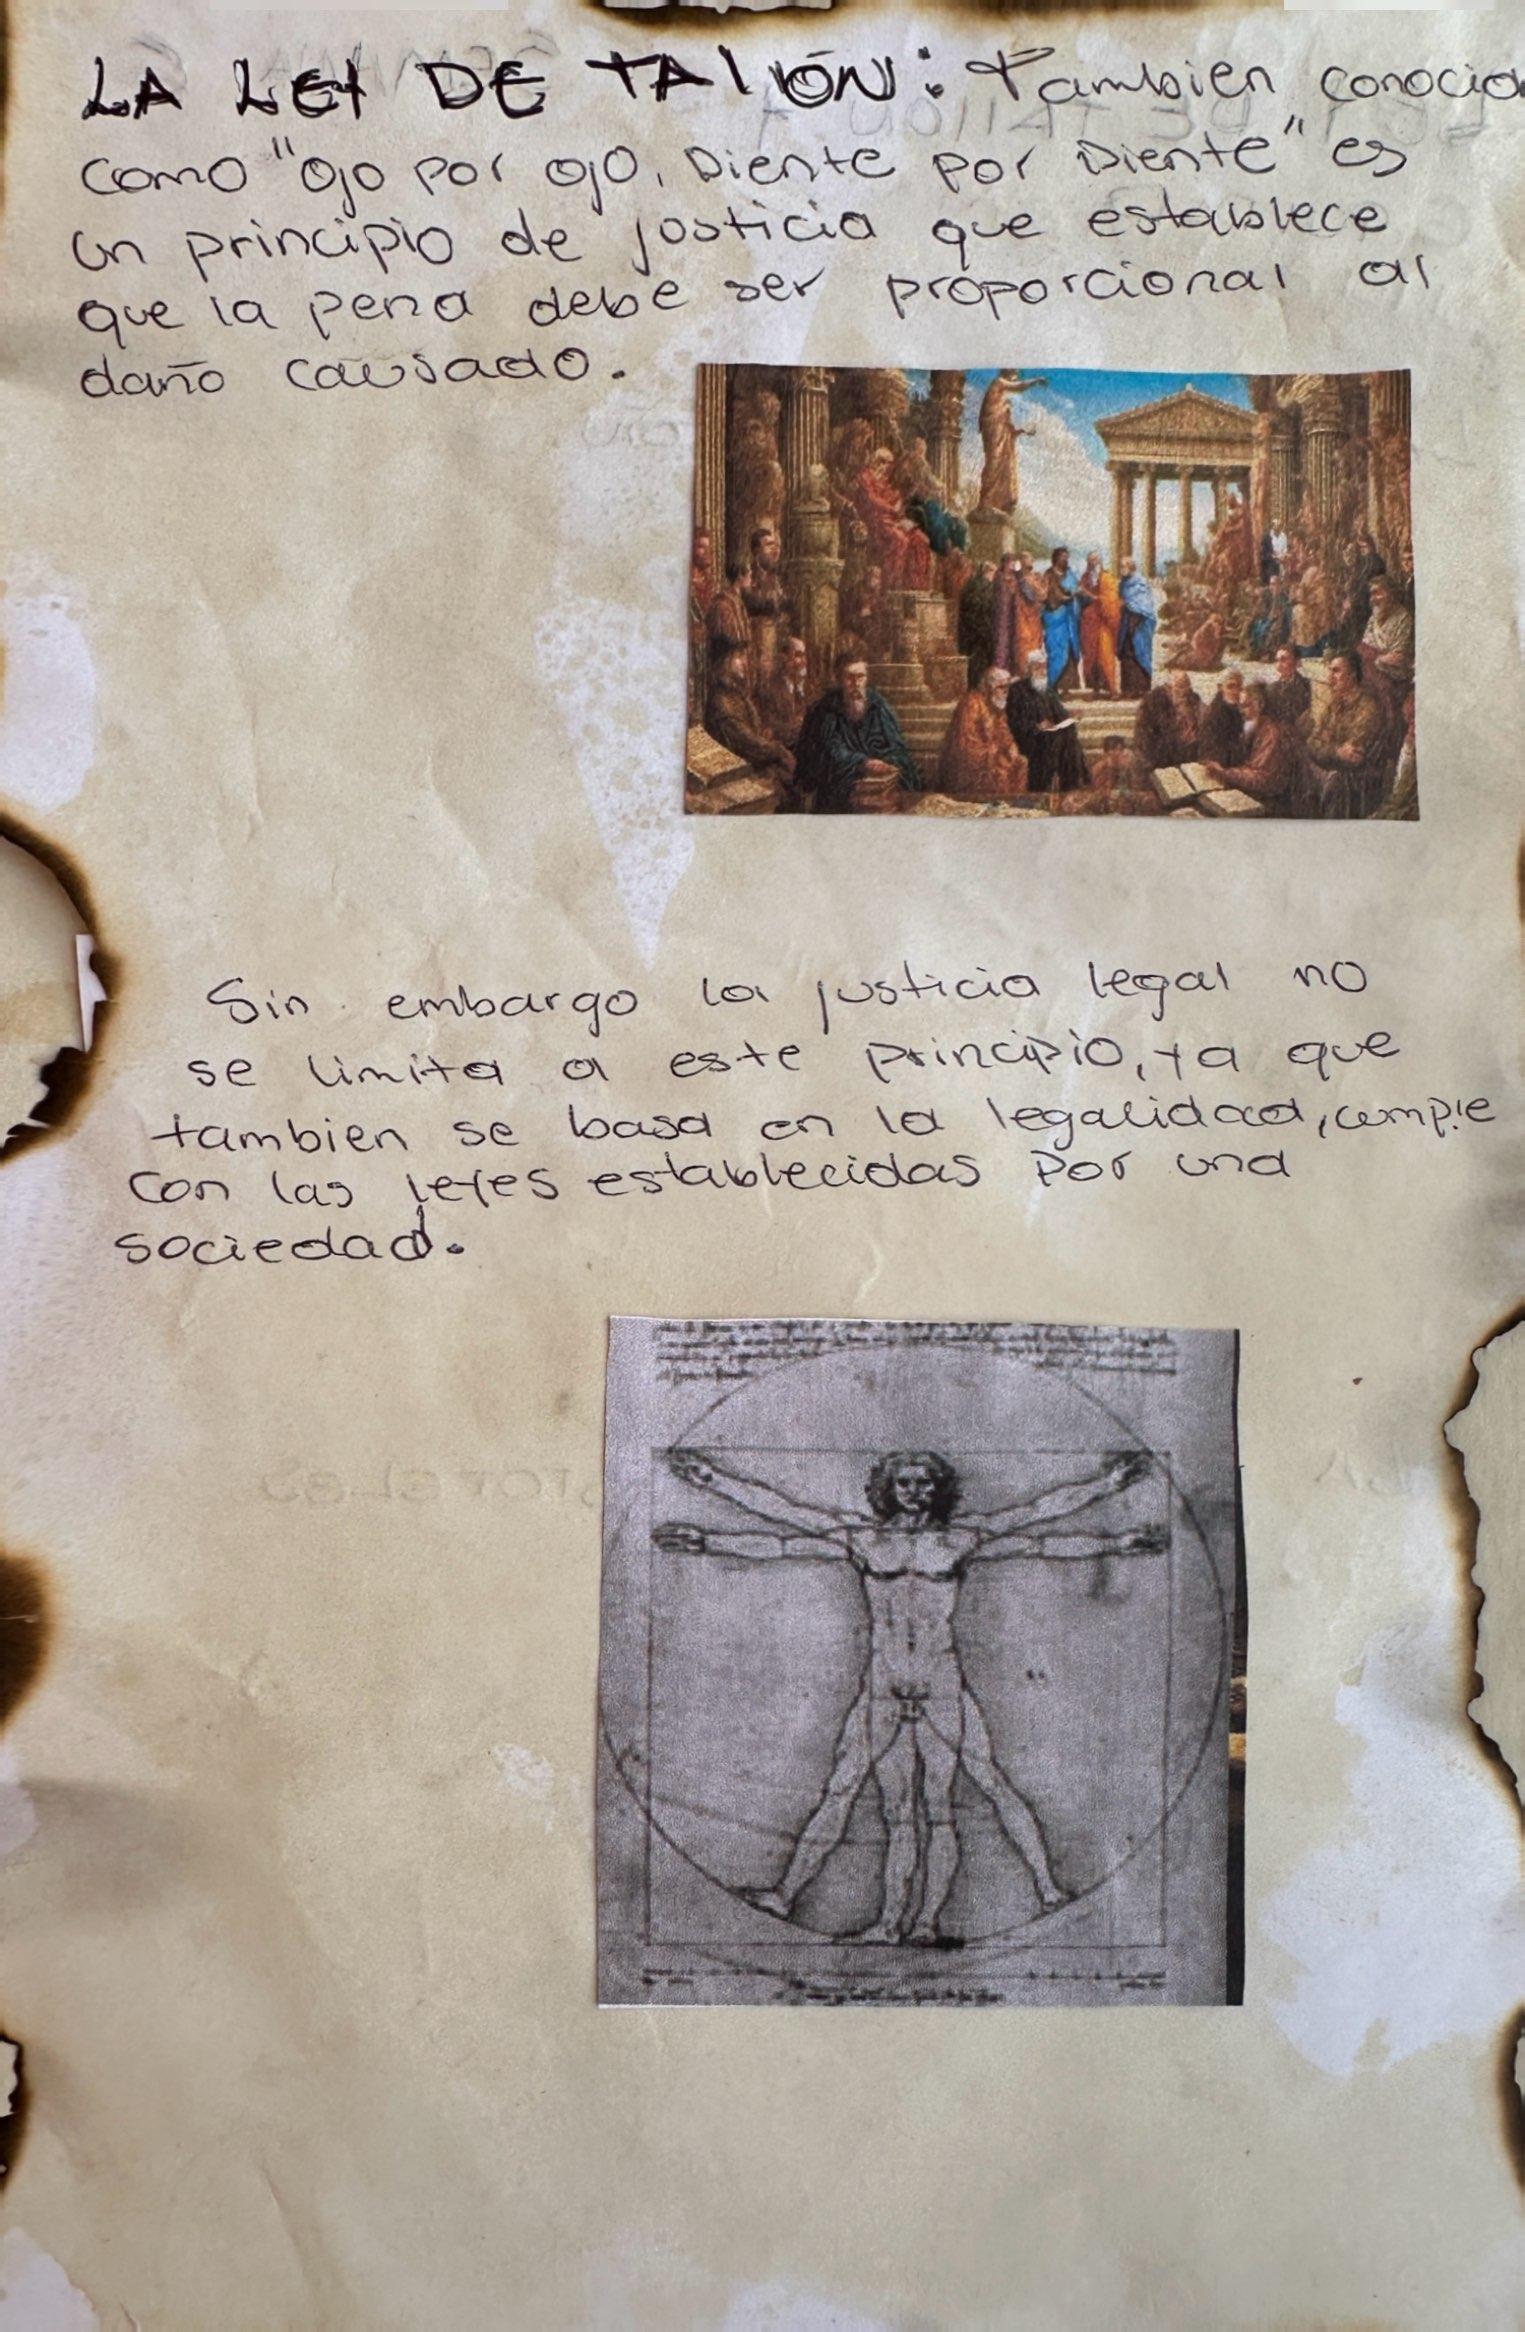 LA LEY DE TALIÓN: Tambien conocida
como "ojo por ojo, Diente por Diente" es
un principio de justicia que establece
que la pena debe ser proporcional al
daño causado.
Sin embargo la justicia legal no
se limita a este principio, ya que
tambien se basa en la legalidad, cumple
con las leyes establecidas por una
sociedad.